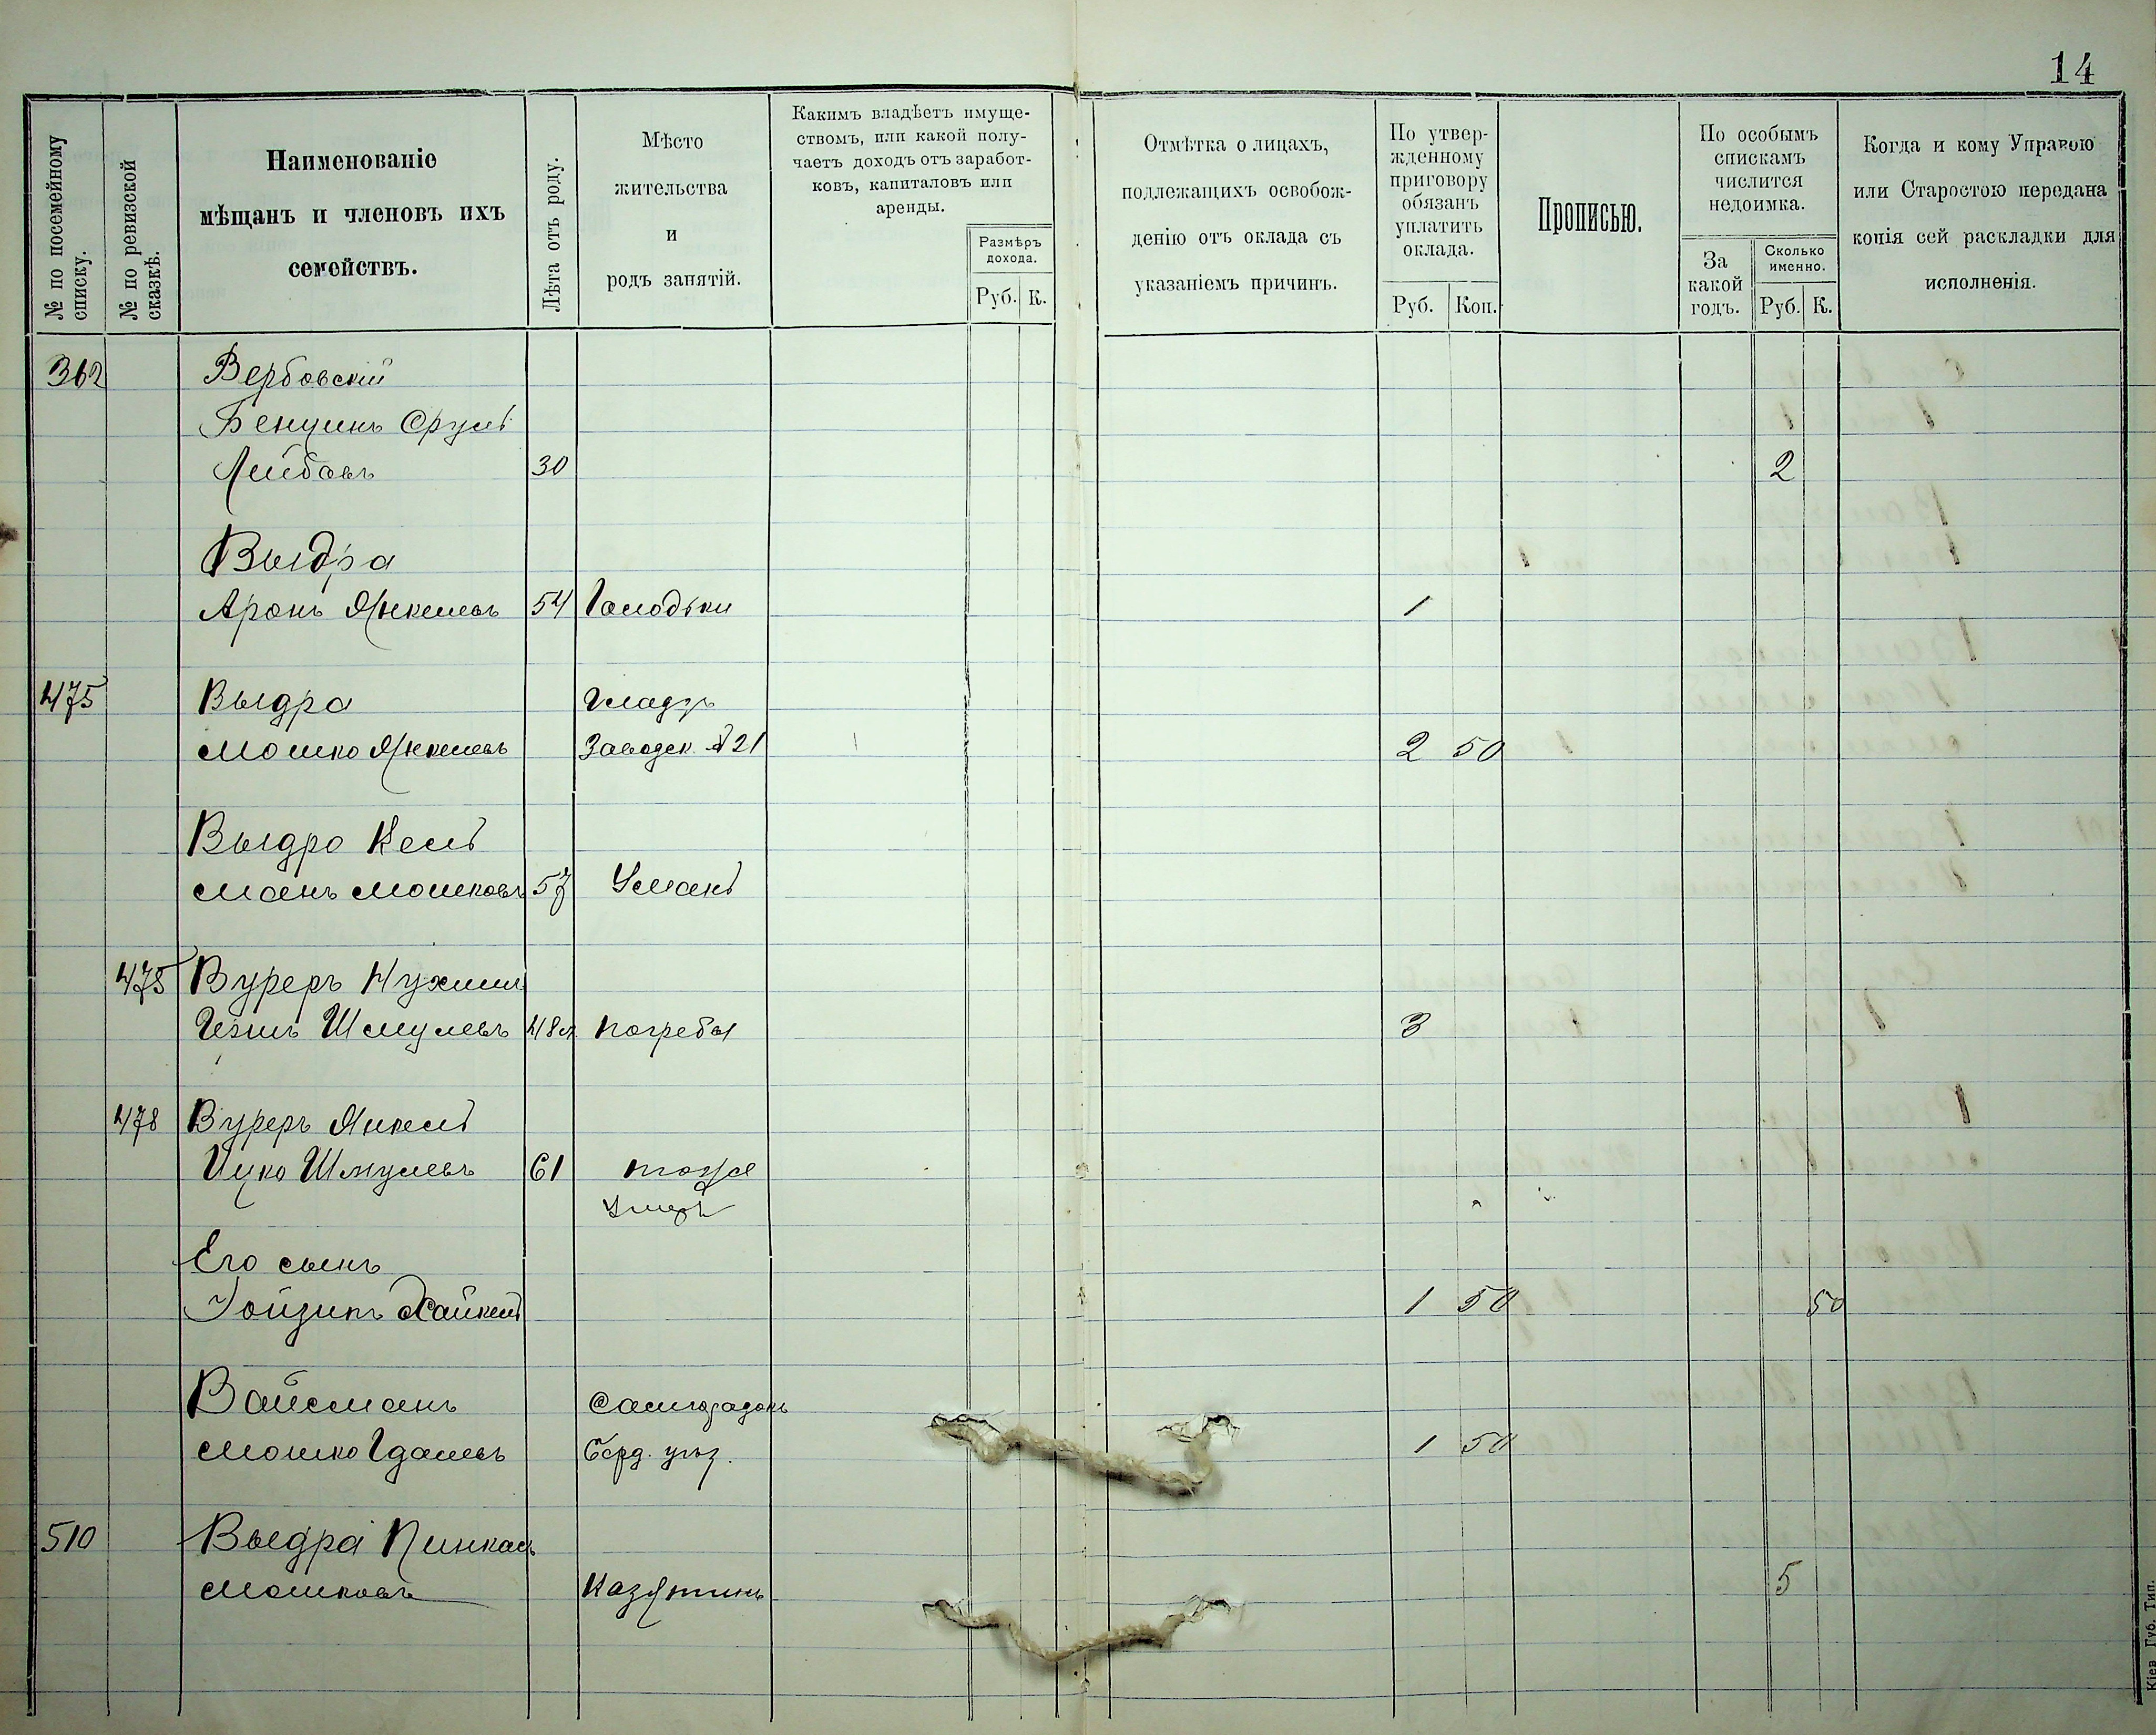 14
№ по посемейному списку.
№ по ревизской сказкѣ.
Наименованіе
мѣщанъ и членовъ ихъ
семействъ.
Лѣта отъ роду.
Мѣсто
жительства
и
родъ занятій.
Какимъ владѣетъ имуще-
ствомъ, или какой полу-
чаетъ доходъ отъ заработ-
ковъ, капиталовъ или
аренды.
Размѣръ
дохода.
Руб. К.
Отмѣтка о лицахъ,
подлежащихъ освобож-
денію отъ оклада съ
указаніемъ причинъ.
По утвер-
жденному
приговору
обязанъ
уплатить
оклада.
Руб. Коп.
Прописью.
По особымъ
спискамъ
числится
недоимка.
За
какой
годъ.
Сколько
именно.
Руб. К.
Когда и кому Управою
или Старостою передана
копія сей раскладки для
исполненія.
362 Вербовскій
Бенціинъ Сруль
Лейбовъ 30 2
Выдра
Аронъ Янкелевъ 54 Голодьки 1
475 Выдра
Мошко Янкелевъ Заводск. № 21 2 50
Выдро Кель
манъ Мошковъ 57 Умань
475 Вуреръ Нухим
Изиль Шмулевъ 48 л. Погребы 3
478 Вуреръ Янкель
Ицко Шмулевъ 61 тоже
Умеръ
Его сынъ
Хайкель 1 50 50
Вайсманъ Самгородокъ
Мошко Гдалевъ Берд. уѣз. 1 50
510 Выдра Пинкас
Мошковъ Казятинъ 5
Кіев. Губ. Тип.